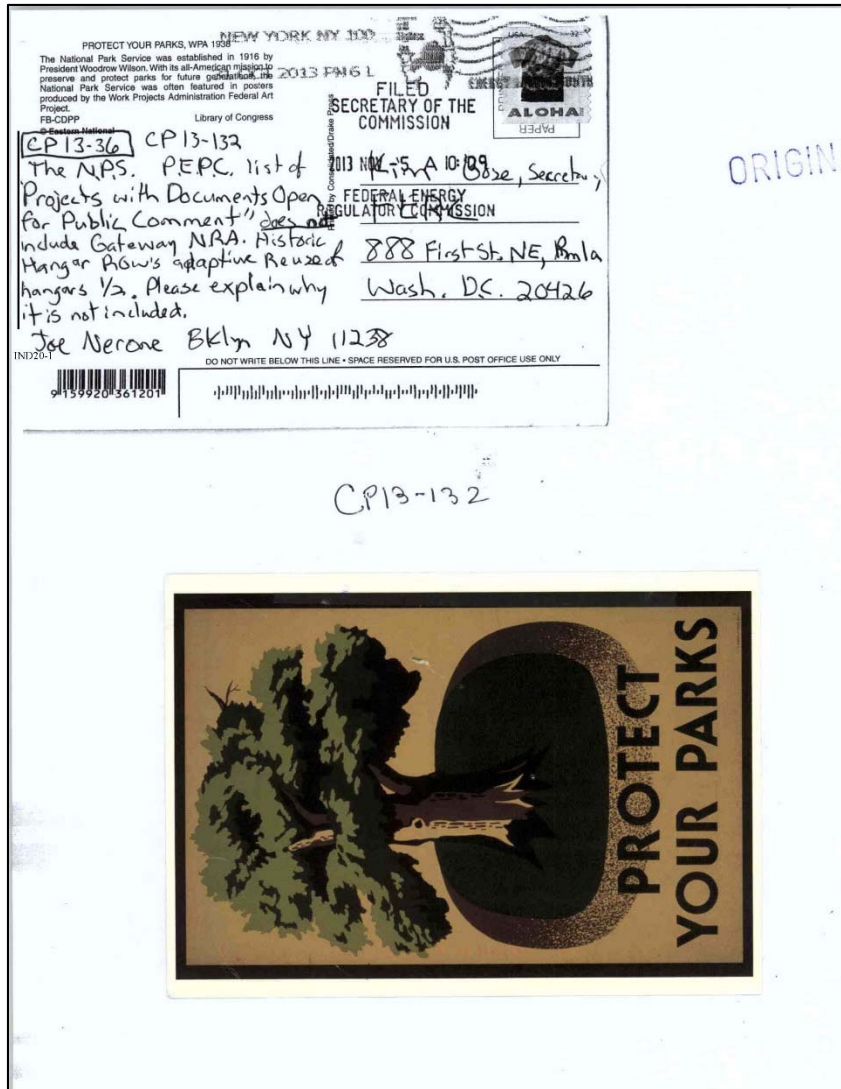 PROTECT YOUR PARKS, WPA 1938
The National Park Service was established in 1916 by
President Woodrow Wilson. With its all-American mission to
preserve and protect parks for future generations, the
National Park Service was often featured in posters
produced by the Work Projects Administration Federal Art
Project.
FB-CDPP Library of Congress
© Eastern National
NEW YORK NY 100
2013 PM 6 L
USA
ALOHA
PAPER
FILED
SECRETARY OF THE
COMMISSION
2013 NOV -5 A 10:09
FEDERAL ENERGY
REGULATORY COMMISSION
ORIGIN
CP 13-36 CP 13-132
The NPS. P.E.P.C. list of
Projects with Documents Open
for Public Comment" does not
include Gateway NRA. Historic
Hangar Row's adaptive Reuse of
hangars 1/2. Please explain why
it is not included.
Joe Nerone Bklyn NY 11238
Bose, Secretary,
888 First St. NE, Rm 1a
Wash. D.C. 20426
IND20-1
DO NOT WRITE BELOW THIS LINE • SPACE RESERVED FOR U.S. POST OFFICE USE ONLY
9 159920 361201
CP13-132
PROTECT
YOUR PARKS